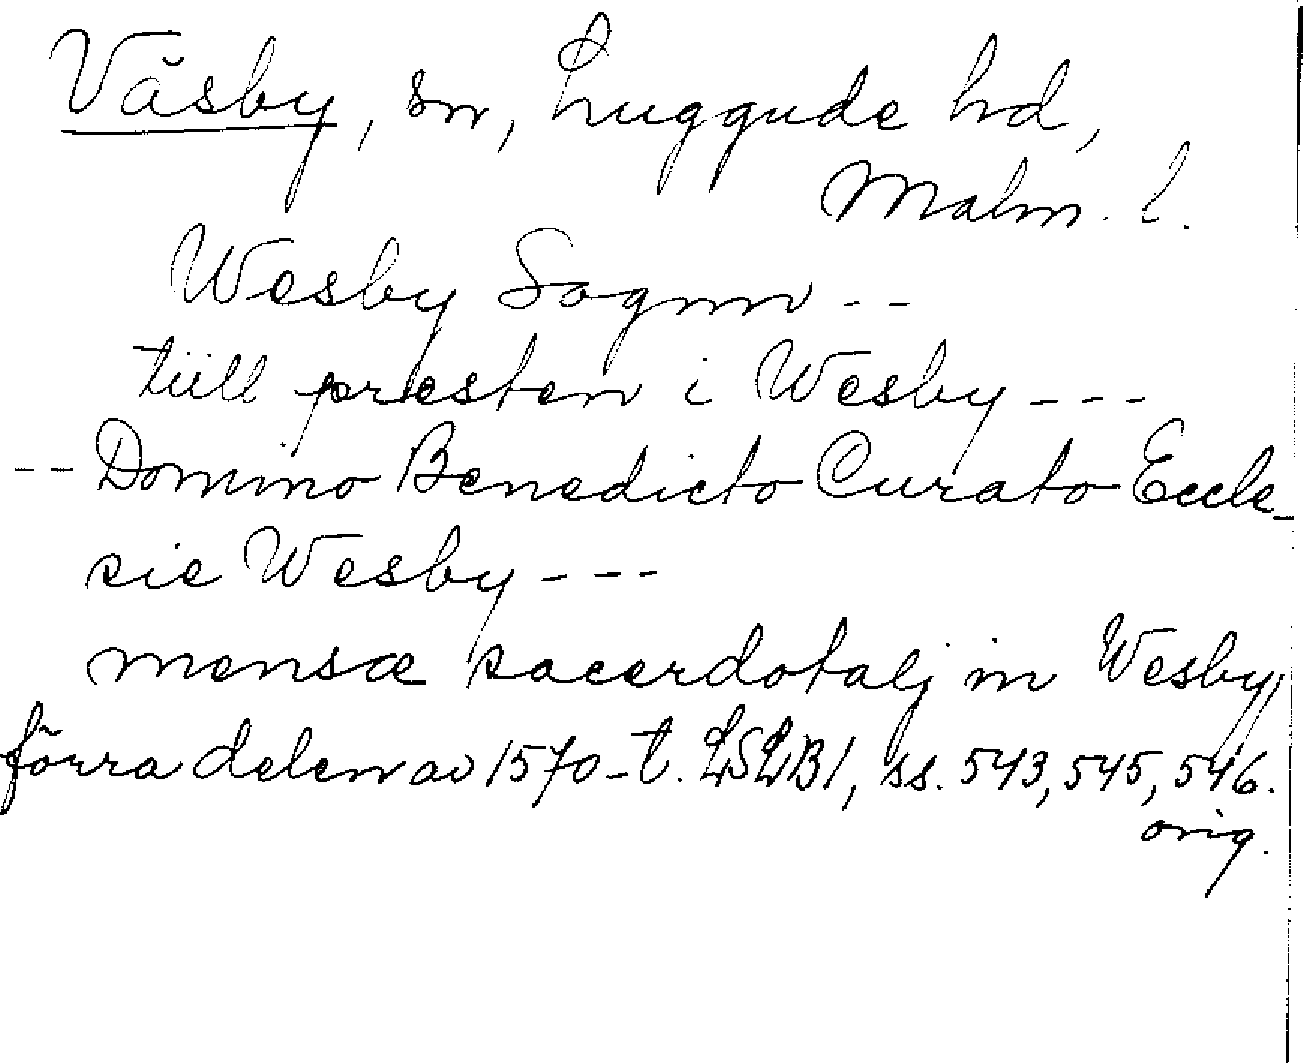 Väsby, sn, Luggude hd,
Malm. l.
Wesby Sognn --
tiill presten i Wesby ---
-- Domino Benedicto Curato Eccle-
sie Wesby ---
mensæ sacerdotalj in Wesby,
förra delen av 1570-t. LSLB1, ss. 543, 545, 546.
orig.